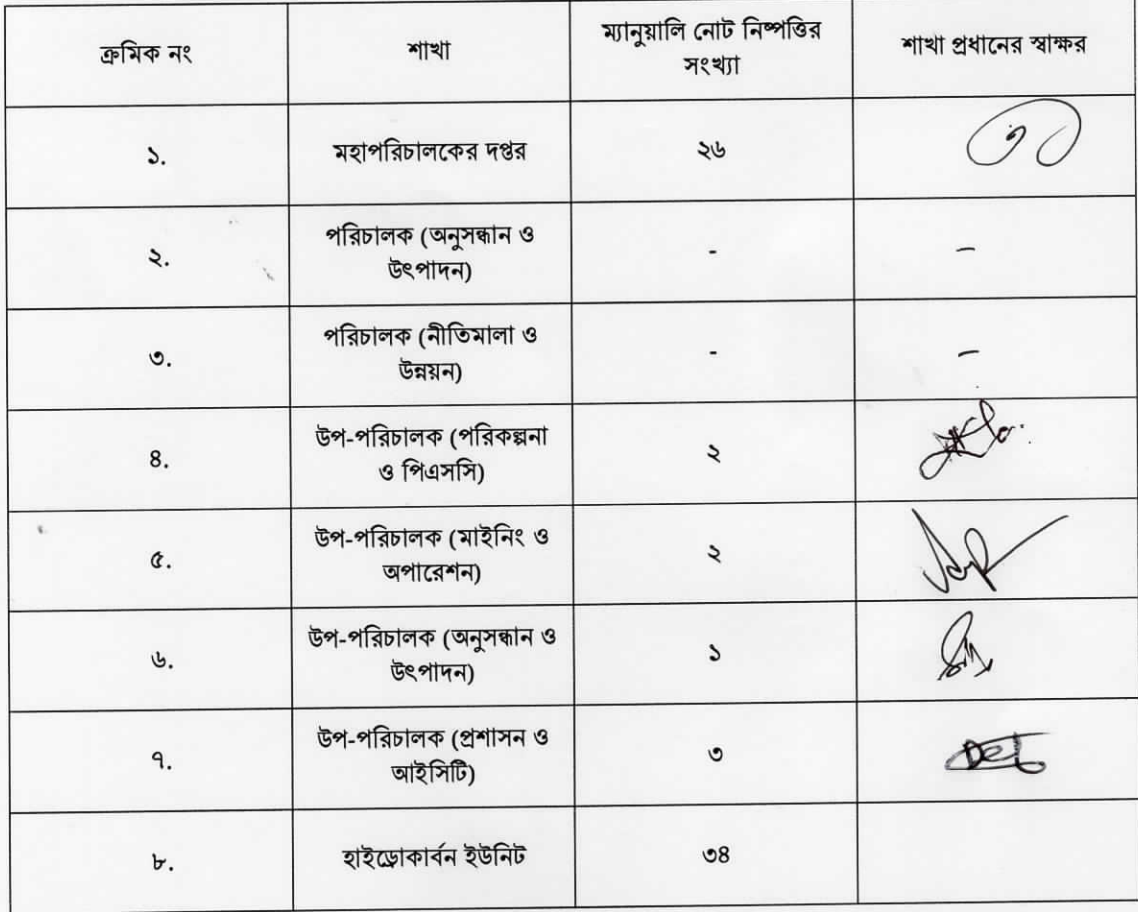 ক্রমিক নং শাখা ম্যানুয়ালি নোট নিষ্পত্তির সংখ্যা শাখা প্রধানের স্বাক্ষর
১. মহাপরিচালকের দপ্তর ২৬
২. পরিচালক (অনুসন্ধান ও
উৎপাদন) - –
৩. পরিচালক (নীতিমালা ও
উন্নয়ন) - –
৪. উপ-পরিচালক (পরিকল্পনা
ও পিএসসি) ২
৫. উপ-পরিচালক (মাইনিং ও
অপারেশন) ২
৬. উপ-পরিচালক (অনুসন্ধান ও
উৎপাদন) ১
৭. উপ-পরিচালক (প্রশাসন ও
আইসিটি) ৩
৮. হাইড্রোকার্বন ইউনিট ৩৪